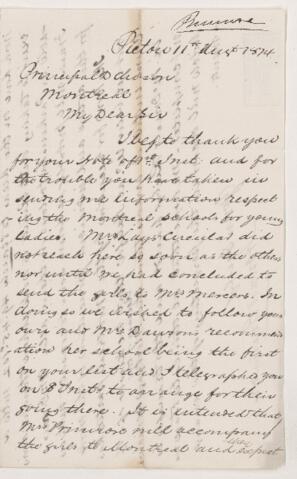 Primrose
Pictou 11th Augt 1874
Principal Dawson
Montreal
My Dear Sir
I beg to thank you
for your Note of 1st Inst. and for
the trouble you have taken in
sending me information respect
ing the Montreal schools for young
Ladies. Mrs Lays Circular did
not reach here so soon as the others
nor until we had concluded to
send the girls to Mrs Mercers. In
doing so we wished to follow your
own and Mrs Dawsons recommend
ation her school being the first
on your list and I telegraphed you
on 8 Inst to arrange for their
going there. It is intended that
Mrs Primrose will accompany
the girls to Montreal and they expect